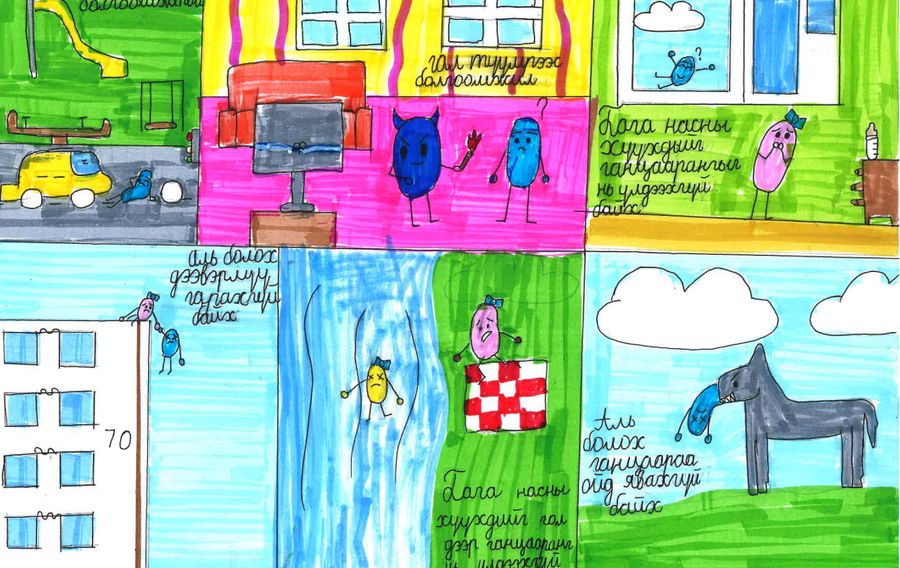 гал түймрээс
болгоомжил
Бага насны
хүүхдийг
ганцаарангыг
нь үлдээхгүй
байх
Аль болох
дээвэрлүү
гарахгүй
байх
70
Бага насны
хүүхдийг гол
дээр ганцааранг
нь үлдээхгүй
Аль
болох
ганцаараа
ойд явахгүй
байх